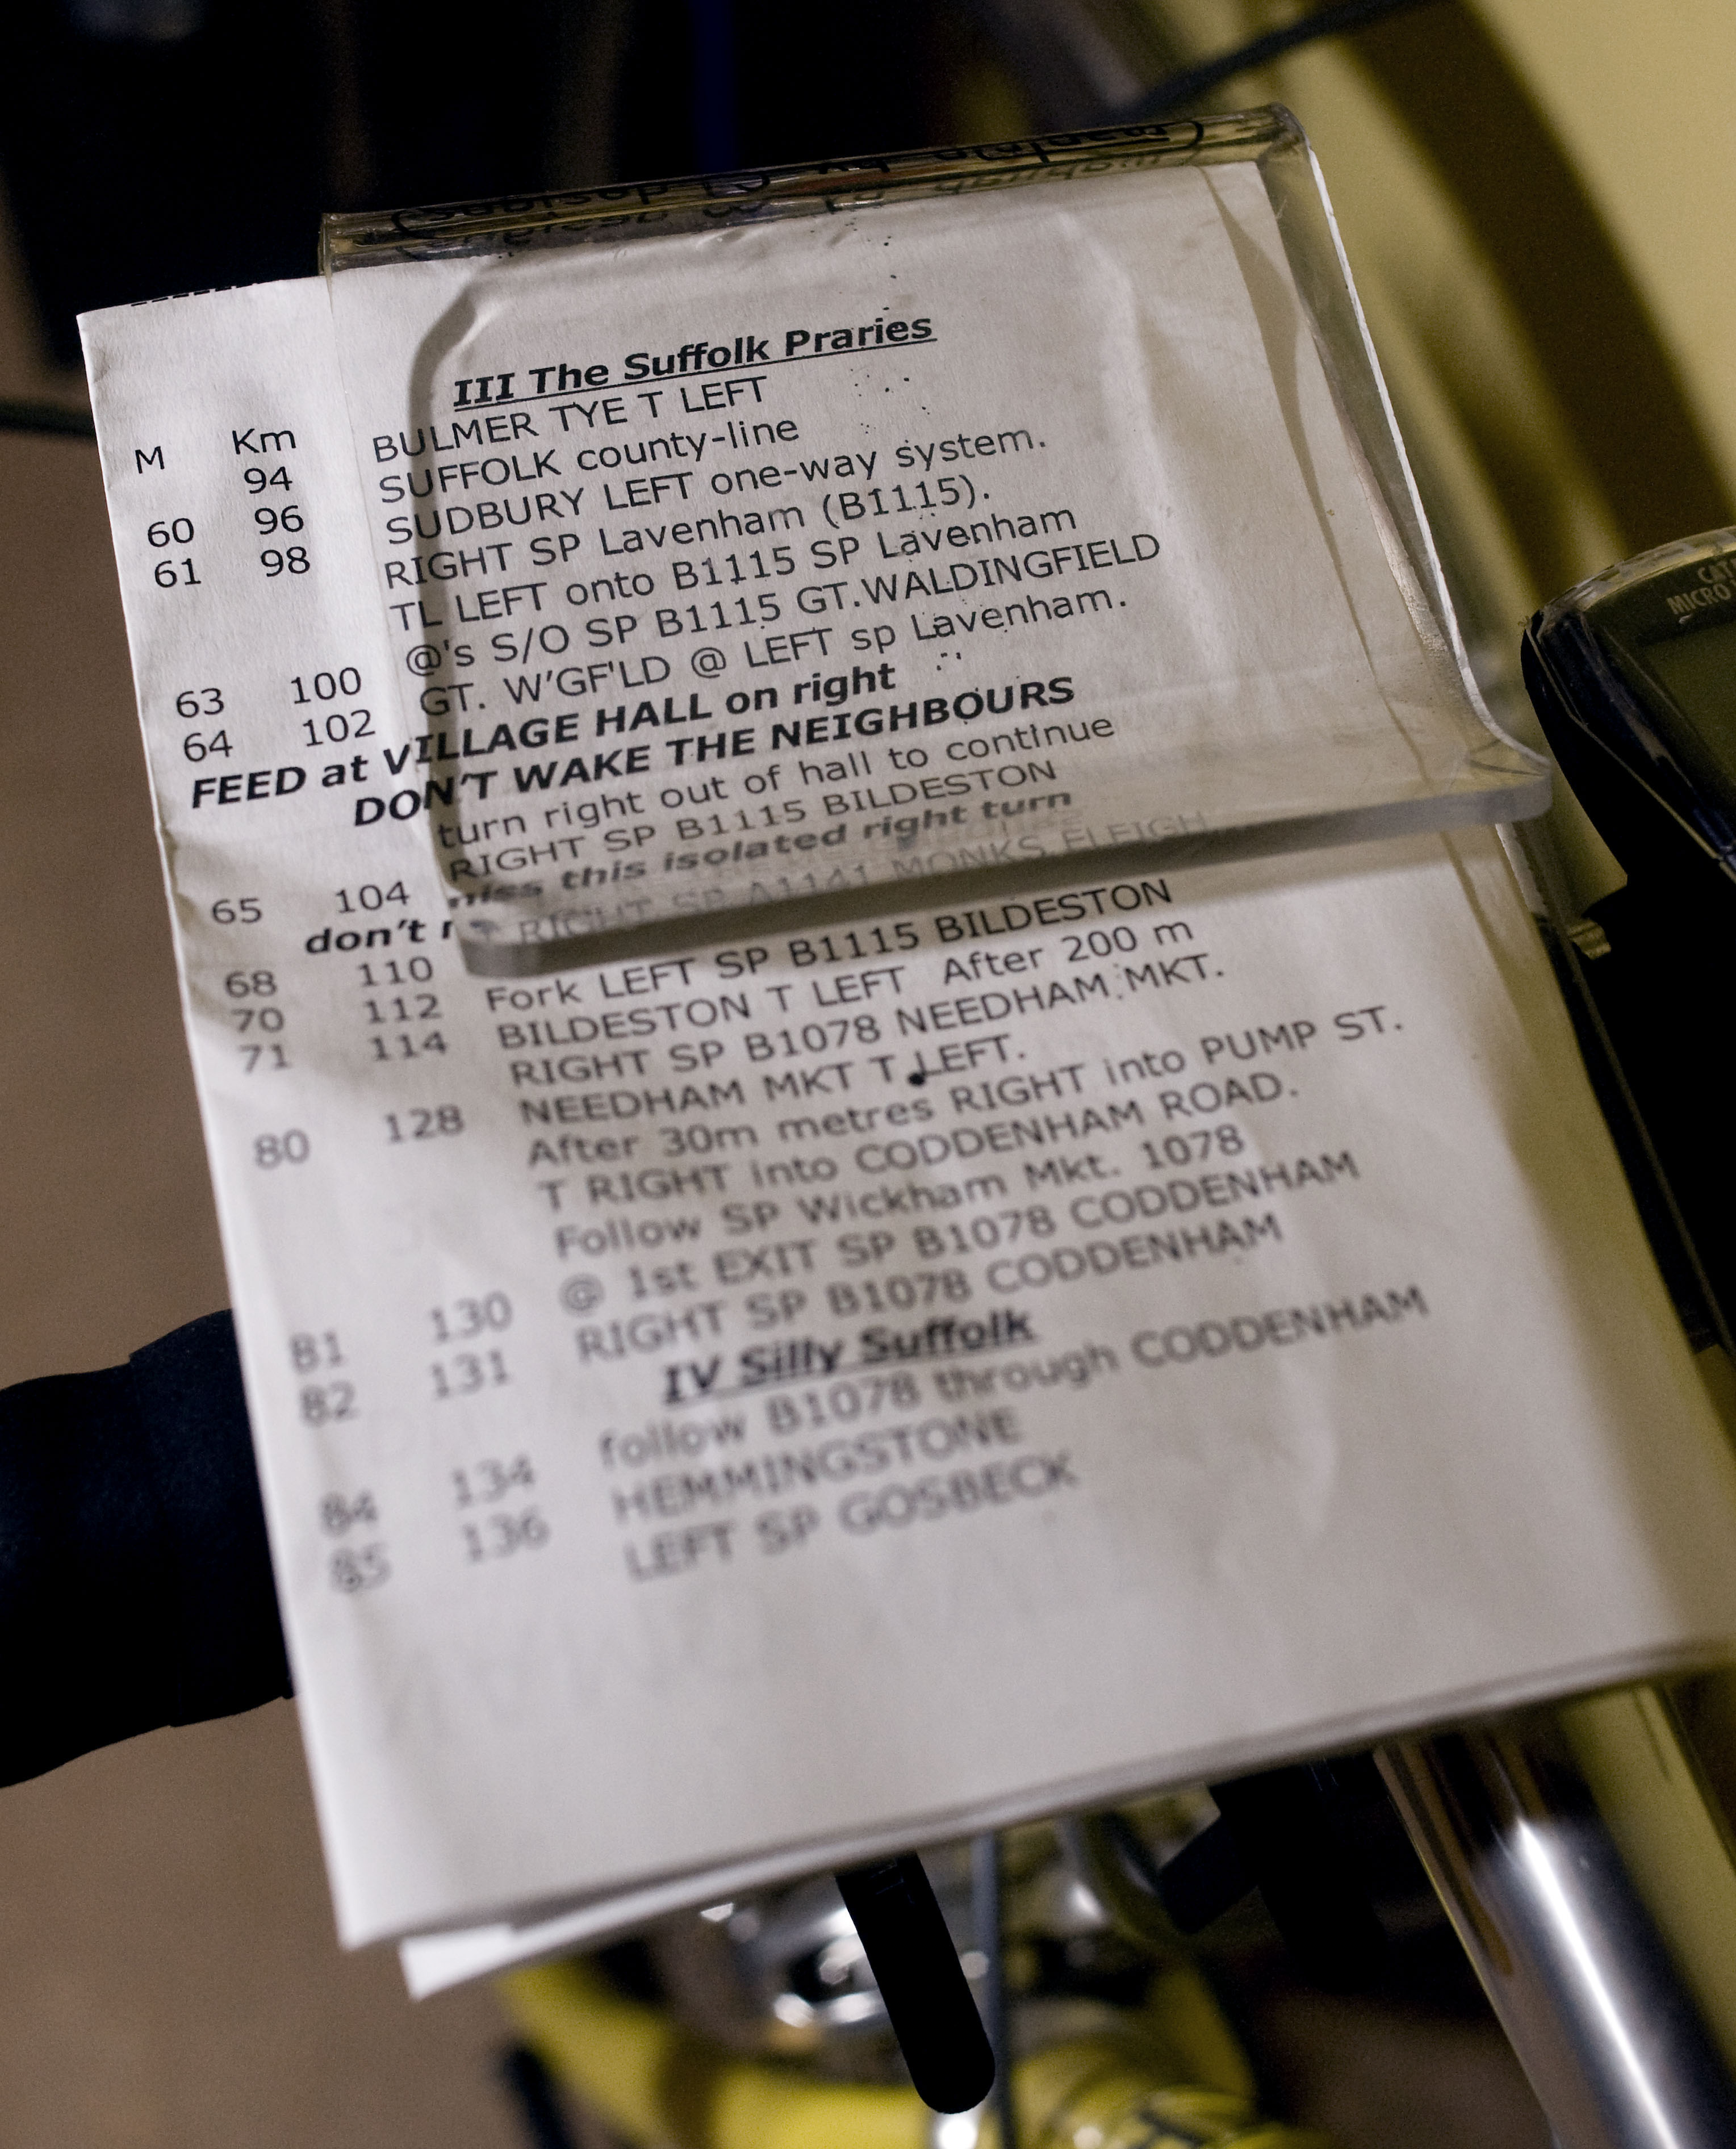 III The Suffolk Praries
M Km
94 BULMER TYE T LEFT
60 96 SUFFOLK county-line
61 98 SUDBURY LEFT one-way system.
RIGHT SP Lavenham (B1115).
TL LEFT onto B1115 SP Lavenham
63 100 @'s S/O SP B1115 GT.WALDINGFIELD
64 102 GT. W'GF'LD @ LEFT sp Lavenham.
FEED at VILLAGE HALL on right
DON'T WAKE THE NEIGHBOURS
turn right out of hall to continue
65 104 RIGHT SP B1115 BILDESTON
don't miss this isolated right turn
68 110 T RIGHT SP A1141 MONKS ELEIGH
70 112 Fork LEFT SP B1115 BILDESTON
71 114 BILDESTON T LEFT After 200 m
RIGHT SP B1078 NEEDHAM MKT.
80 128 NEEDHAM MKT T LEFT.
After 30m metres RIGHT into PUMP ST.
T RIGHT into CODDENHAM ROAD.
Follow SP Wickham Mkt. 1078
81 130 @ 1st EXIT SP B1078 CODDENHAM
82 131 RIGHT SP B1078 CODDENHAM
IV Silly Suffolk
84 134 follow B1078 through CODDENHAM
85 136 HEMMINGSTONE
LEFT SP GOSBECK
CAT
MICRO